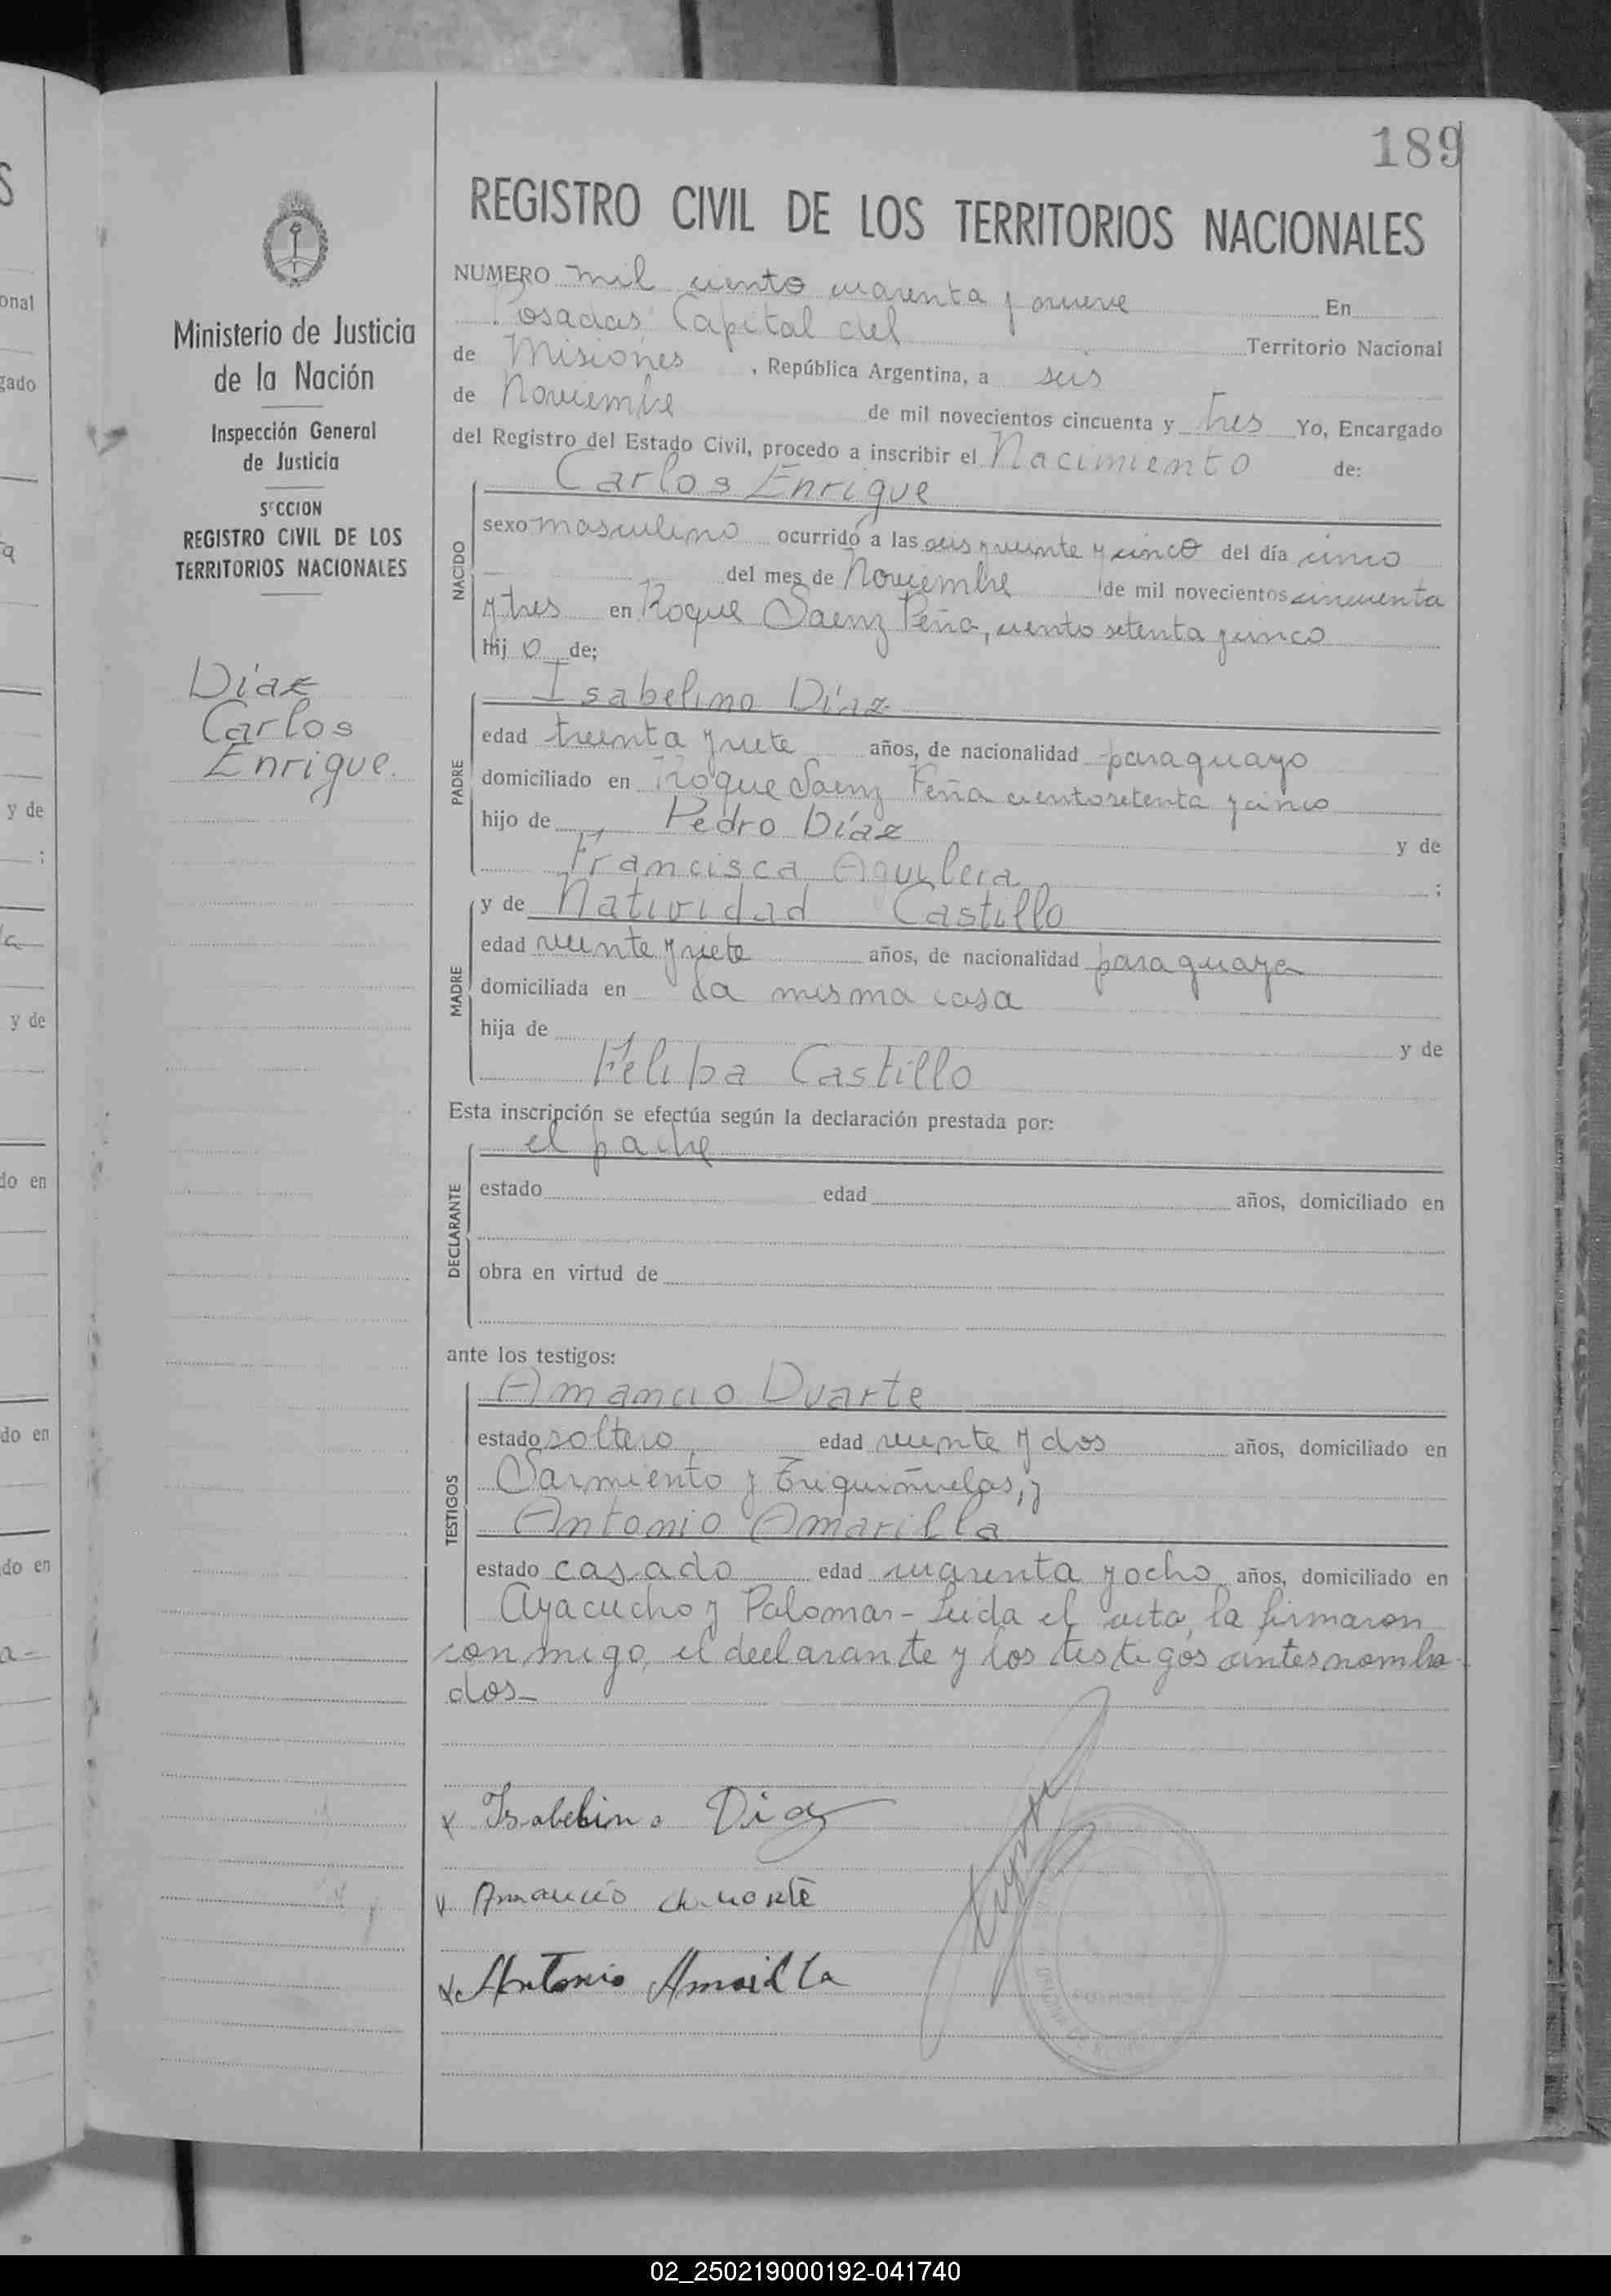 189
REGISTRO CIVIL DE LOS TERRITORIOS NACIONALES
Ministerio de Justicia
de la Nación
Inspección General
de Justicia
SECCION
REGISTRO CIVIL DE LOS
TERRITORIOS NACIONALES
Díaz
Carlos
Enrique.
NUMERO mil ciento cuarenta y nueve En
Posadas Capital del Territorio Nacional
de Misiones, República Argentina, a seis
de Noviembre de mil novecientos cincuenta y tres Yo, Encargado
del Registro del Estado Civil, procedo a inscribir el Nacimiento de:
Carlos Enrique
NACIDO
sexo masculino ocurrido a las seis y veinte y cinco del día cinco
del mes de Noviembre de mil novecientos cincuenta
y tres en Roque Saenz Peña, ciento setenta y cinco
hij o de;
Isabelino Díaz
PADRE
edad treinta y siete años, de nacionalidad paraguayo
domiciliado en Roque Saenz Peña ciento setenta y cinco
hijo de Pedro Díaz y de
Francisca Aguilera ;
y de Natividad Castillo
MADRE
edad veinte y siete años, de nacionalidad paraguaya
domiciliada en la misma casa
hija de y de
Felipa Castillo
Esta inscripción se efectúa según la declaración prestada por:
el padre
DECLARANTE
estado edad años, domiciliado en
obra en virtud de
ante los testigos:
Amancio Duarte
TESTIGOS
estado soltero, edad veinte y dos años, domiciliado en
Sarmiento y Eriquiñuelas, y
Antonio Amarilla
estado casado edad cuarenta y ocho años, domiciliado en
Ayacucho y Palomar - Leida el acta, la firmaron
conmigo, el declarante y los testigos antes nombra-
dos-
x Isabelino Diaz
x Amancio duarte
x Antonio Amarilla
onal
gado
y de
y de
do en
do en
do en
02_250219000192-041740